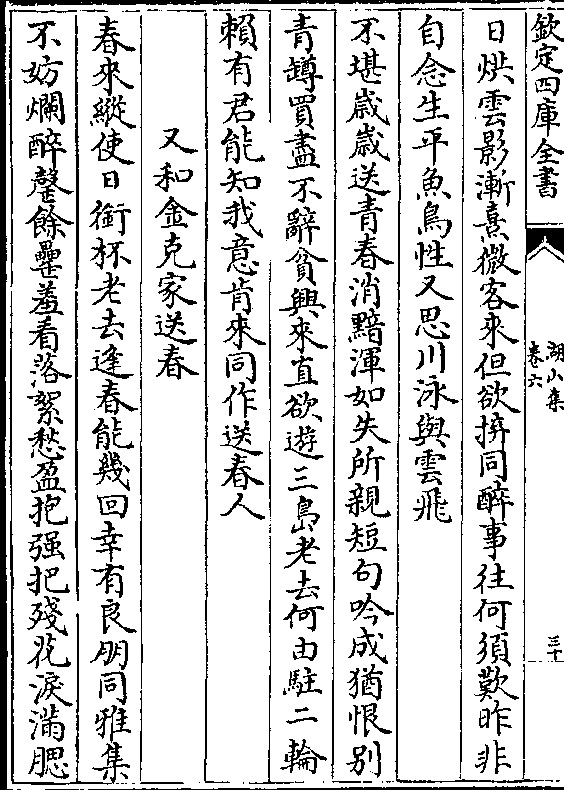 欽定四庫全書
湖山集
卷六
三十
日烘雲影漸熹微客來但欲拚同醉事往何須歎昨非
自念生平魚鳥性又思川泳與雲飛
不堪歳歳送青春消黯渾如失所親短句吟成猶恨别
青罇買盡不辭貧興來直欲遊三島老去何由駐二輪
賴有君能知我意肯來同作送春人
又和金克家送春
春來縱使日銜杯老去逢春能幾回幸有良朋同雅集
不妨爛醉罄餘罍羞看落絮愁盈抱强把殘花淚滿腮